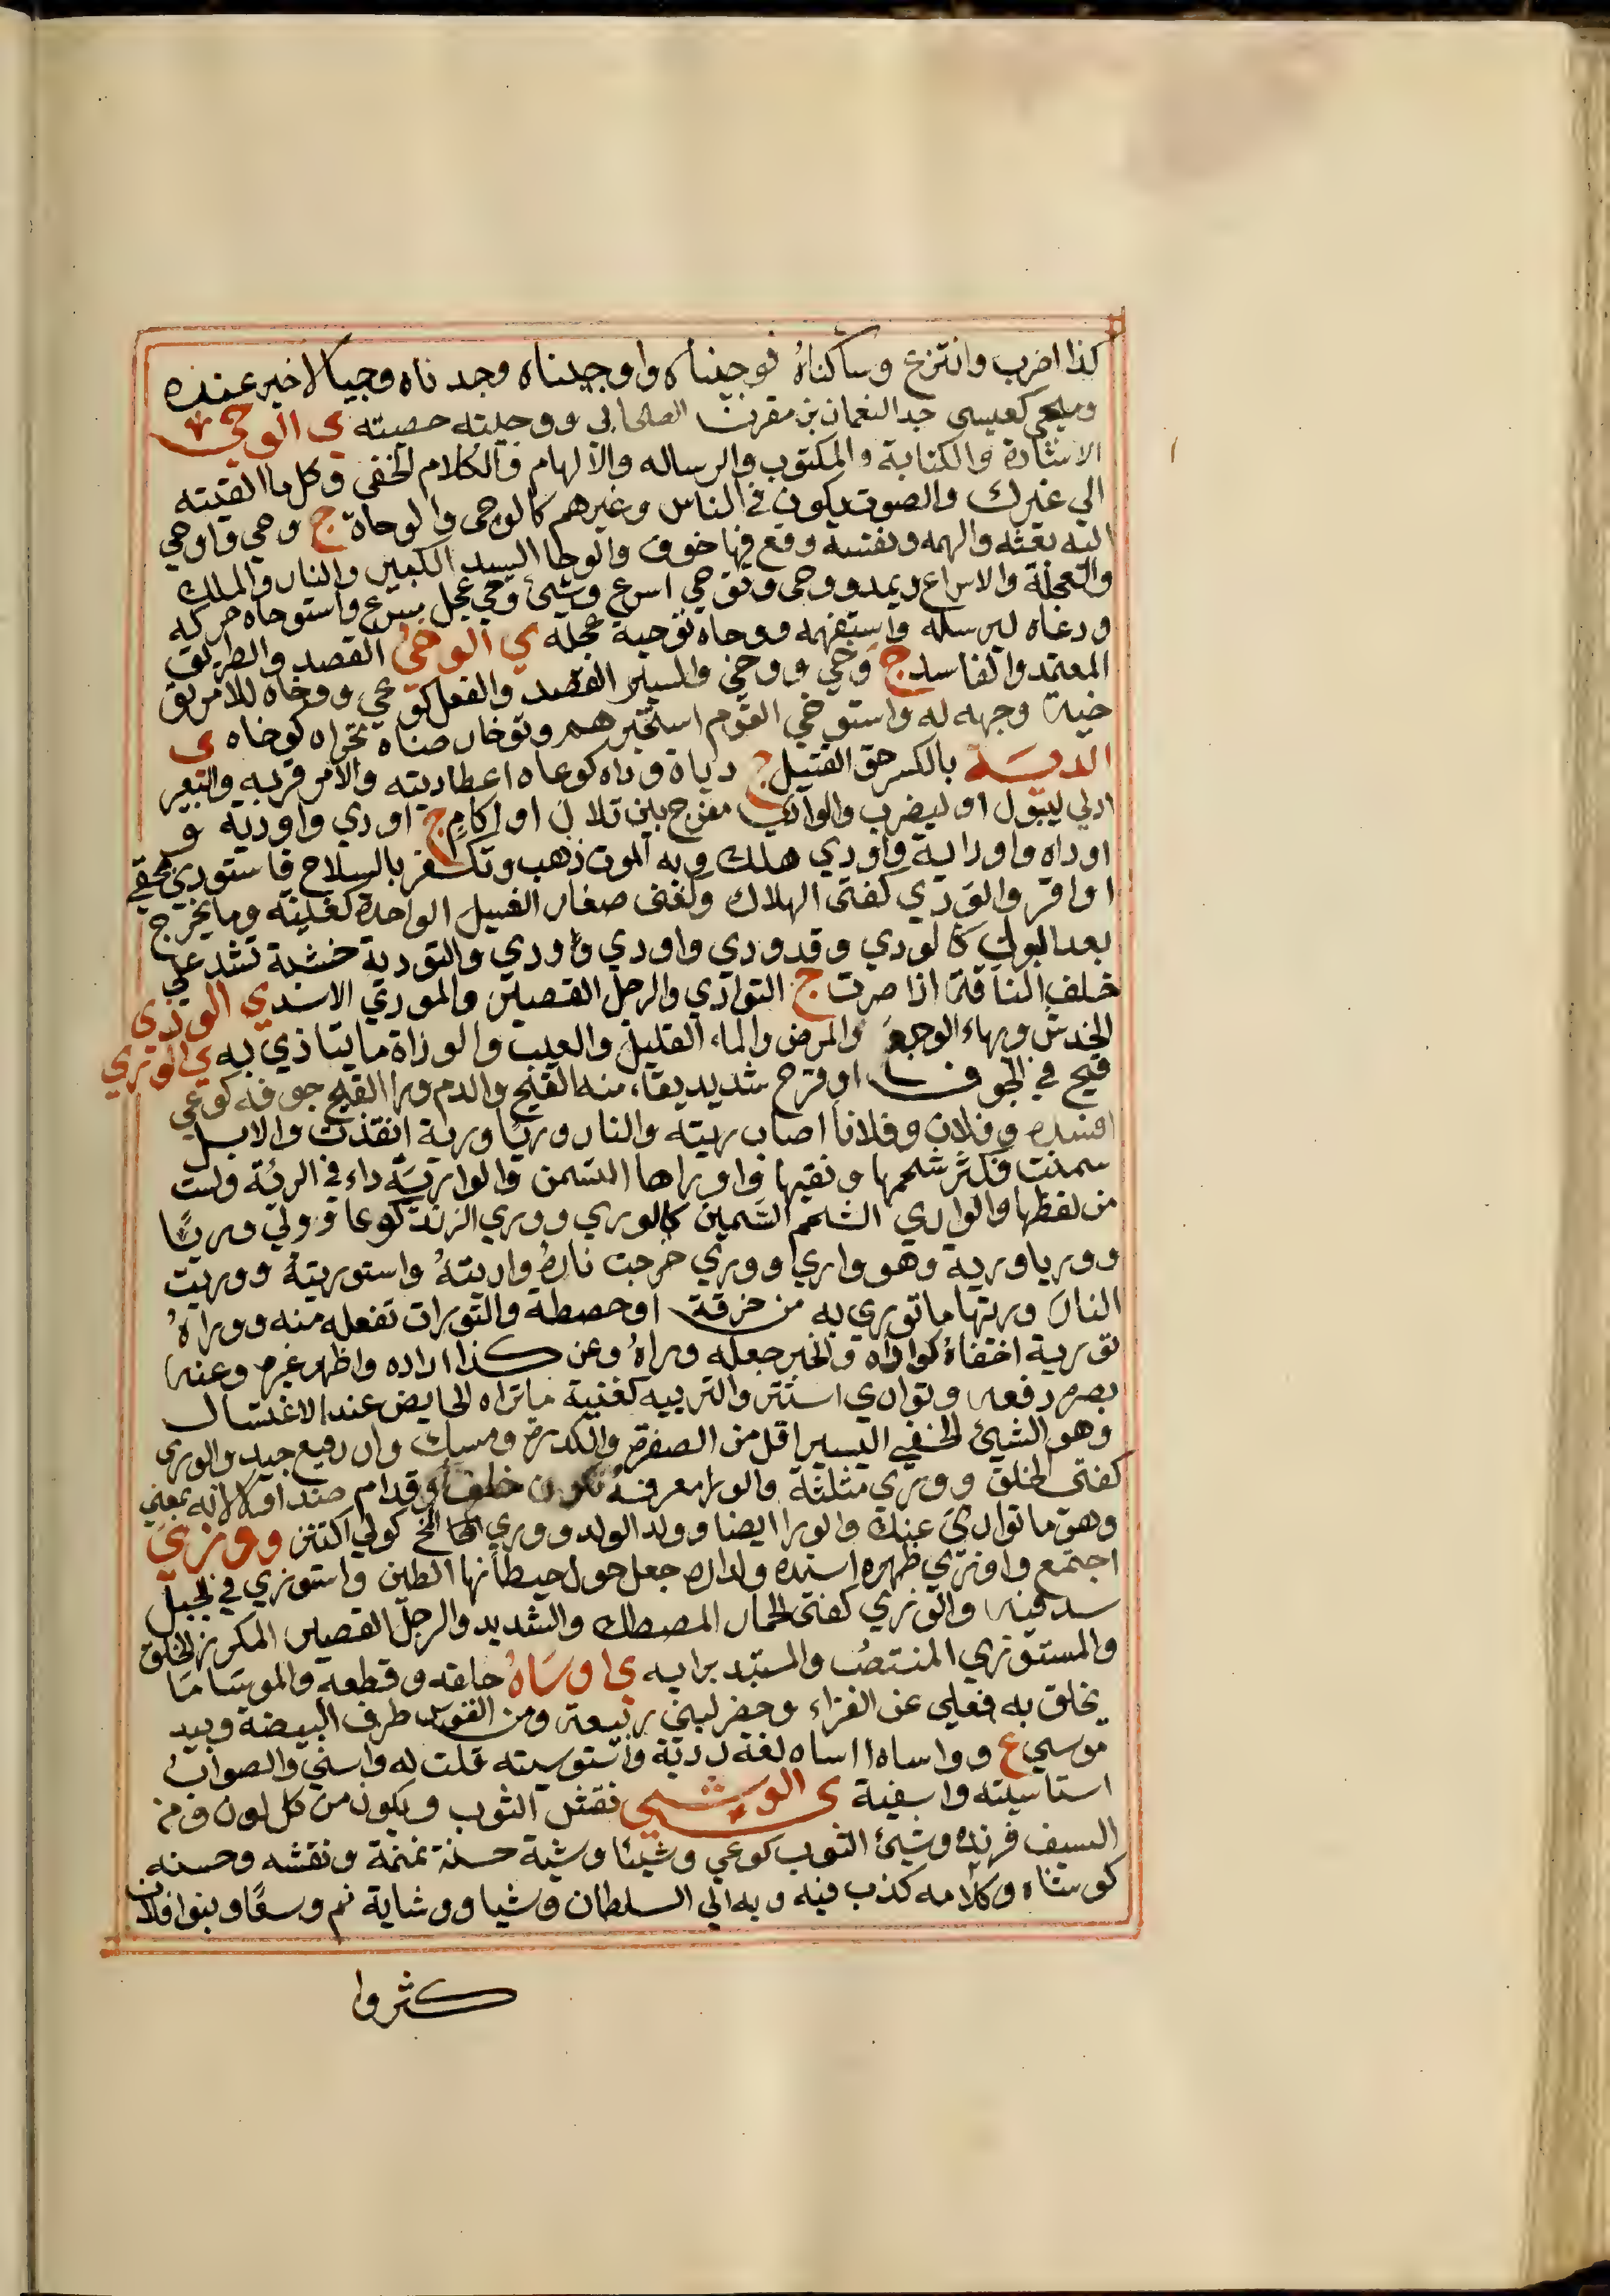 كذا اضرب وانتزع وساكناه فوجيناه واوجيناه وجدناه وجيا لاخير عنده
وميجى كعيسى جد النعمان بن مقرن الصحابى ووجيته خصيته ى الوحي
الاشارة والكتابة والمكتوب والرساله والالهام والكلام الخفى وكل ما القيته
الي غيرك والصوت يكون في الناس وغيرهم كالوحى والوحاة ج وحي واوحي
اليه بعثه والهمه ونفسه وقع فيها خوف والوحا السيد الكبير والنار والملك
والعجلة والاسراع ويمد ووحى وتوحي اسرع وشئ وحي عجل مسرع واستوحاه حركه
ودعاه ليرسله واستفهمه ووحاه توحية عجله ي الوخي القصد والطريق
المعتمد والقاصد ج وخي ووخي والسير القصد والفعل كوعي ووخاه للامر تو
خية وجهه له واستوخي القوم استخبرهم وتوخا رضاه تحراه كوخاه ى
الدية بالكسر حق القتيل ج ديات ووداه كوعاه اعطا ديته والامر قربه والبعير
ادلي ليبول او ليضرب والوادي مفرج بين تلال او اكام ج اودي واودية و
اوداه واوداية واودي هلك وبه الموت ذهب وتكفر بالسلاح فاستودي بحقي
اواقر والودي كفتى الهلاك وكغنى صغار الفسيل الواحدة كغنية وما يخرج
بعد البول كالودي وقد ودي واودي وودي والتودية خشبة تشد علي
خلف الناقة اذا صرت ج التوادي والرجل القصير والمودي الاسد ي الوذي
الخدش وبهاء الوجع والمرض والماء القليل والعيب والوذاة ما يتاذي به ي الوري
قيح في الجوف او قرح شديد يقاء منه القيح والدم ورا القيح جوفه كوعي
افسده وفلان وفلانا اصاب ريته والنار وريا ورية اتقدت والابل
سمنت فكثر شحمها ونقيها واوراها السمن والوارية داء في الرئة وليست
من لفظها والواري الشحم السمين كالوري ووري الزند كوعا وولي وريا
ووريا ورية وهو واري ووري خرجت ناره واريته واستوريته ووريت
النار وريتها ما توري به من خرقة او حصطة والتورات تفعله منه ووراه
تورية اخفاه كواراه والخبر جعله وراه وعن كذا اراده واظهر غيره وعنه
بصره دفعه وتواري استتر والتربيه كغنية ما تراه الحايض عند الاغتسال
وهو الشيئ الخفي اليسير اقل من الصفرة والكدرة ومسك وار رفيع جيد والوري
كفتى الخلق ووري مثلثة والورا معرفة تكون خلف وقدام ضد اولا لانه بمعني
وهو ما تواري عنك والورا ايضا وولد الولد ووري المخ كولي اكتنز ووزي
اجتمع واوزي ظهره اسنده ولداره جعل حول حيطانها الطين واستوزي في الجبل
سند فيه والوزي كفتى الحمار المصطك والشديد والرجل القصير المكرز الخلق
والمستوزي المنتصب والمستبد برايه ى اوساه حلقه وقطعه والموسا ما
يحلق به فعلي عن الفراء وحفر لبني ربيعة ومن القونس طرف البيضة وبيد
موسي ع وواساه اساه لغة رديّة واستوسيته قلت له واسني والصواب
استاسيته واسيته ى الوشي نقش الثوب ويكون من كل لون ومن
السيف فرنده وشيئ الثوب كوعي وشيئا وشية حسنة نمنمة ونقشه وحسنه
كوشاه وكلامه كذب فيه وبه الي السلطان وشيا ووشاية نم وسعا وبنوا فلان
كثروا